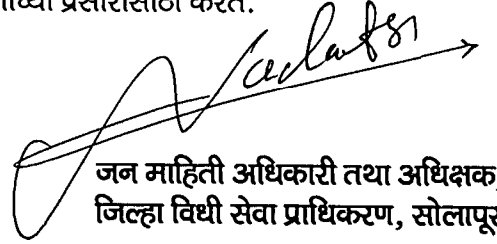 प्रसारासाठी करते.
जन माहिती अधिकारी तथा अधिक्षक,
जिल्हा विधी सेवा प्राधिकरण, सोलापूर